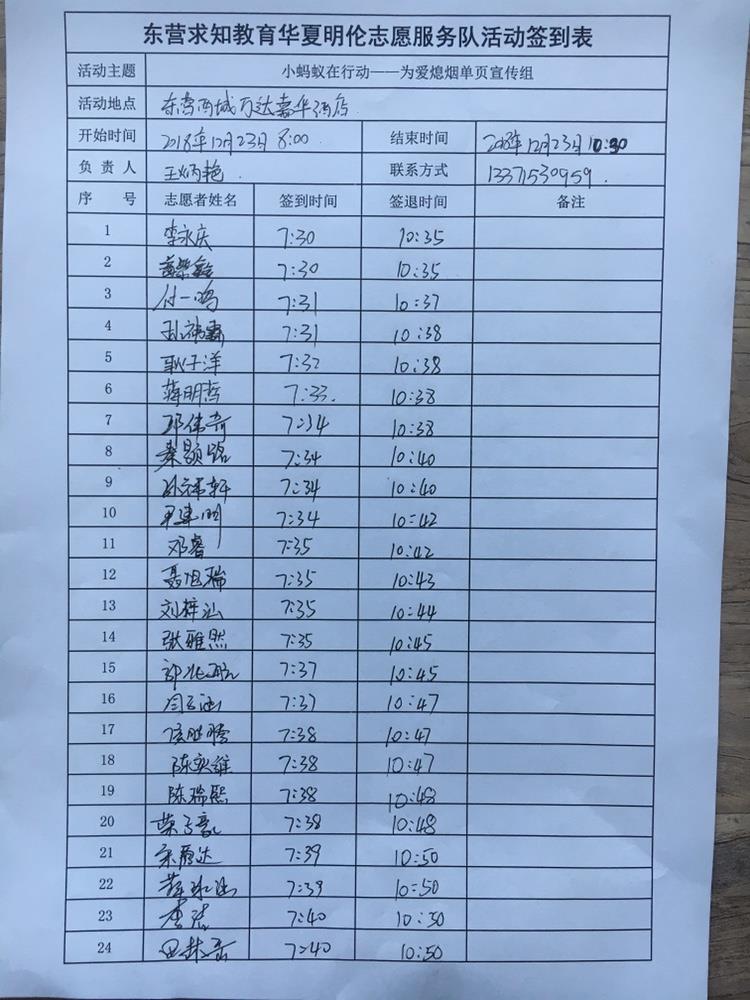 东营求知教育华夏明伦志愿服务队活动签到表
活动主题 小蚂蚁在行动——为爱熄烟单页宣传组
活动地点 东营西城万达嘉华酒店
开始时间 2018年12月23日 8:00 结束时间 2018年12月23日 10:30
负责人 王炳艳 联系方式 13371530959.
序号 志愿者姓名 签到时间 签退时间 备注
1 李永庆 7:30 10:35
2 7:30 10:35
3 付一鸣 7:31 10:37
4 7:31 10:38
5 耿子洋 7:32 10:38
6 蒋明哲 7:33. 10:38
7 邓伟奇 7:34 10:38
8 秦颢铭 7:34 10:40
9 7:34 10:40
10 7:34 10:42
11 邓睿 7:35 10:42
12 聂旭瑞 7:35 10:43
13 刘梓汕 7:35 10:44
14 张雅然 7:35 10:45
15 7:37 10:45
16 7:37 10:47
17 7:38 10:47
18 7:38 10:47
19 陈瑞熙 7:38 10:48
20 7:38 10:48
21 7:39 10:50
22 7:39 10:50
23 7:40 10:50
24 7:40 10:50